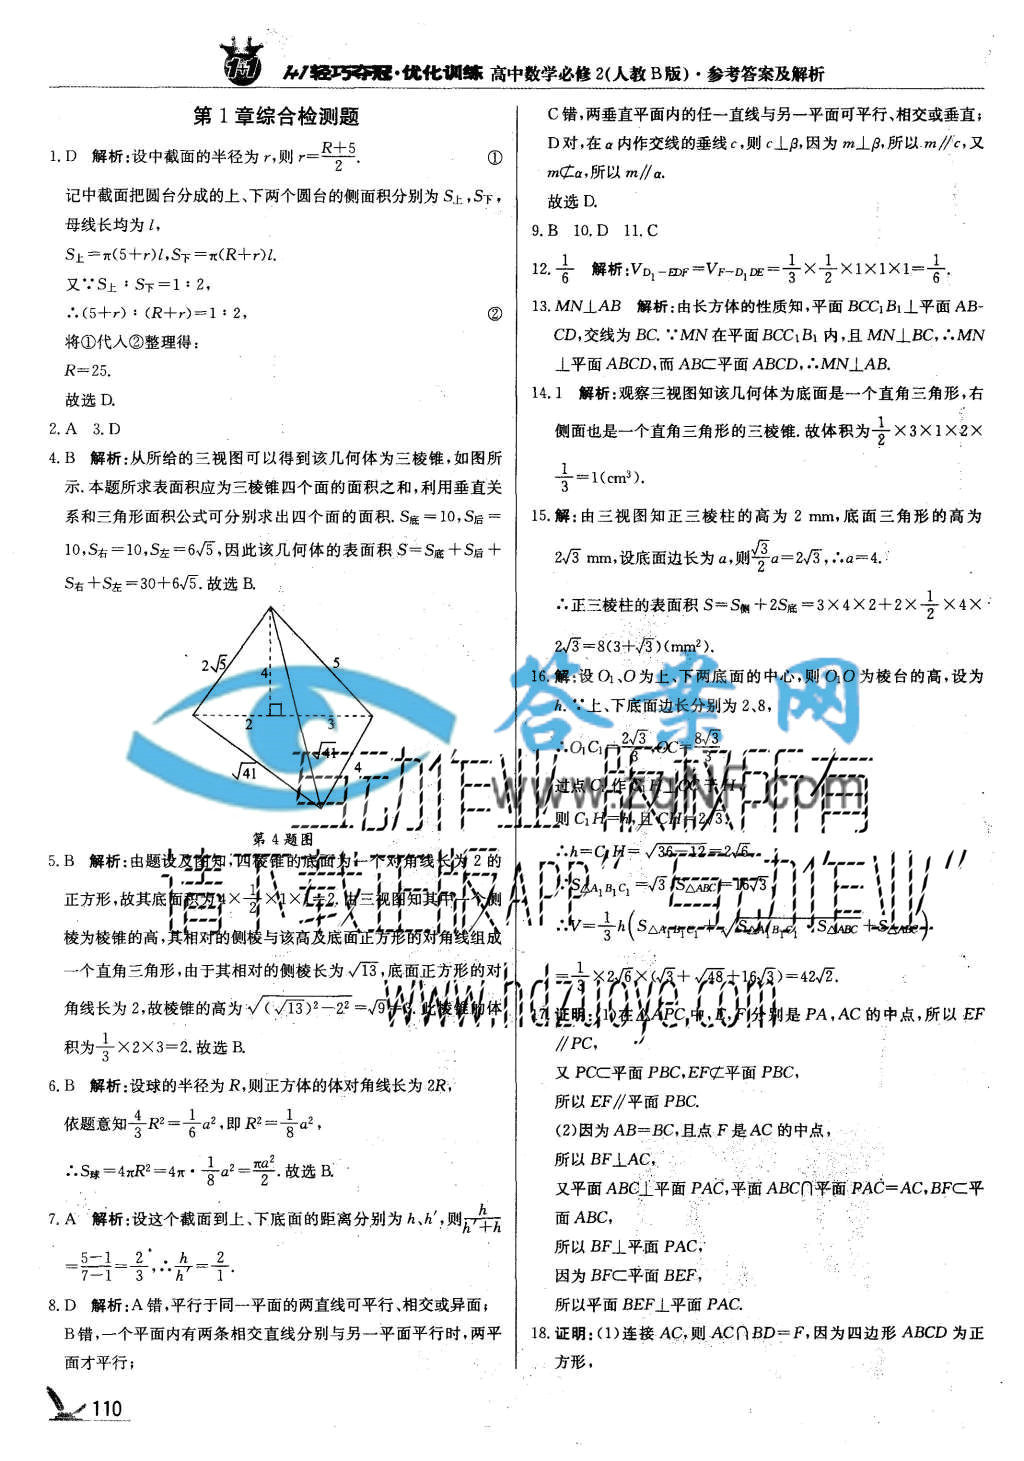 1+1轻巧夺冠·优化训练 高中数学必修2(人教B版)·参考答案及解析
第1章综合检测题
1. D 解析:设中截面的半径为r,则r=(R+5)/2. ①
记中截面把圆台分成的上、下两个圆台的侧面积分别为S上,S下,
母线长均为l,
S上=π(5+r)l,S下=π(R+r)l.
又∵S上:S下=1:2,
∴(5+r):(R+r)=1:2, ②
将①代入②整理得:
R=25.
故选D.
2. A 3. D
4. B 解析:从所给的三视图可以得到该几何体为三棱锥,如图所
示.本题所求表面积应为三棱锥四个面的面积之和,利用垂直关
系和三角形面积公式可分别求出四个面的面积. S底=10,S后=
10,S右=10,S左=6√5,因此该几何体的表面积S=S底+S后+
S右+S左=30+6√5.故选B.
2√5
5
4
2
3
√41
√41
4
第4题图
5. B 解析:由题设及图知,四棱锥的底面为一个对角线长为2的
正方形,故其底面积为4×1/2×1×1=2.由三视图知其中一个侧
棱为棱锥的高,其相对的侧棱与该高及底面正方形的对角线组成
一个直角三角形,由于其相对的侧棱长为√13,底面正方形的对
角线长为2,故棱锥的高为√((√13)²-2²)=√9=3.此棱锥的体
积为1/3×2×3=2.故选B.
6. B 解析:设球的半径为R,则正方体的体对角线长为2R,
依题意知4/3R²=1/6a²,即R²=1/8a²,
∴S球=4πR²=4π·1/8a²=πa²/2.故选B.
7. A 解析:设这个截面到上、下底面的距离分别为h、h′,则h/(h′+h)
=(5-1)/(7-1)=2/3,∴h/h′=2/1.
8. D 解析:A错,平行于同一平面的两直线可平行、相交或异面;
B错,一个平面内有两条相交直线分别与另一平面平行时,两平
面才平行;
C错,两垂直平面内的任一直线与另一平面可平行、相交或垂直;
D对,在α内作交线的垂线c,则c⊥β,因为m⊥β,所以m∥c,又
m⊄α,所以m∥α.
故选D.
9. B 10. D 11. C
12. 1/6 解析:V_{D₁-EDF}=V_{F-D₁DE}=1/3×1/2×1×1×1=1/6.
13. MN⊥AB 解析:由长方体的性质知,平面BCC₁B₁⊥平面AB-
CD,交线为BC.∵MN在平面BCC₁B₁内,且MN⊥BC,∴MN
⊥平面ABCD,而AB⊂平面ABCD,∴MN⊥AB.
14. 1 解析:观察三视图知该几何体为底面是一个直角三角形,右
侧面也是一个直角三角形的三棱锥.故体积为1/2×3×1×2×
1/3=1(cm³).
15. 解:由三视图知正三棱柱的高为2 mm,底面三角形的高为
2√3 mm,设底面边长为a,则√3/2a=2√3,∴a=4.
∴正三棱柱的表面积S=S侧+2S底=3×4×2+2×1/2×4×
2√3=8(3+√3)(mm²).
16. 解:设O₁、O为上、下两底面的中心,则O₁O为棱台的高,设为
h.∵上、下底面边长分别为2、8,
∴O₁C₁=2√3/3,OC=8√3/3
过点C₁作C₁H⊥OC于H,
则C₁H=h,且CH=2√3,
∴h=C₁H=√(36-12)=2√6,
∵S△A₁B₁C₁=√3,S△ABC=16√3,
∴V=1/3h(S△A₁B₁C₁+√(S△A₁B₁C₁·S△ABC)+S△ABC)
=1/3×2√6×(√3+√48+16√3)=42√2.
17. 证明:(1)在△APC中,E,F分别是PA,AC的中点,所以EF
∥PC,
又PC⊂平面PBC,EF⊄平面PBC,
所以EF∥平面PBC.
(2)因为AB=BC,且点F是AC的中点,
所以BF⊥AC,
又平面ABC⊥平面PAC,平面ABC∩平面PAC=AC,BF⊂平
面ABC,
所以BF⊥平面PAC,
因为BF⊂平面BEF,
所以平面BEF⊥平面PAC.
18. 证明:(1)连接AC,则AC∩BD=F,因为四边形ABCD为正
方形,
110
答案网
www.zqnf.com
请下载正版APP"互动作业"
www.hdzuoye.com